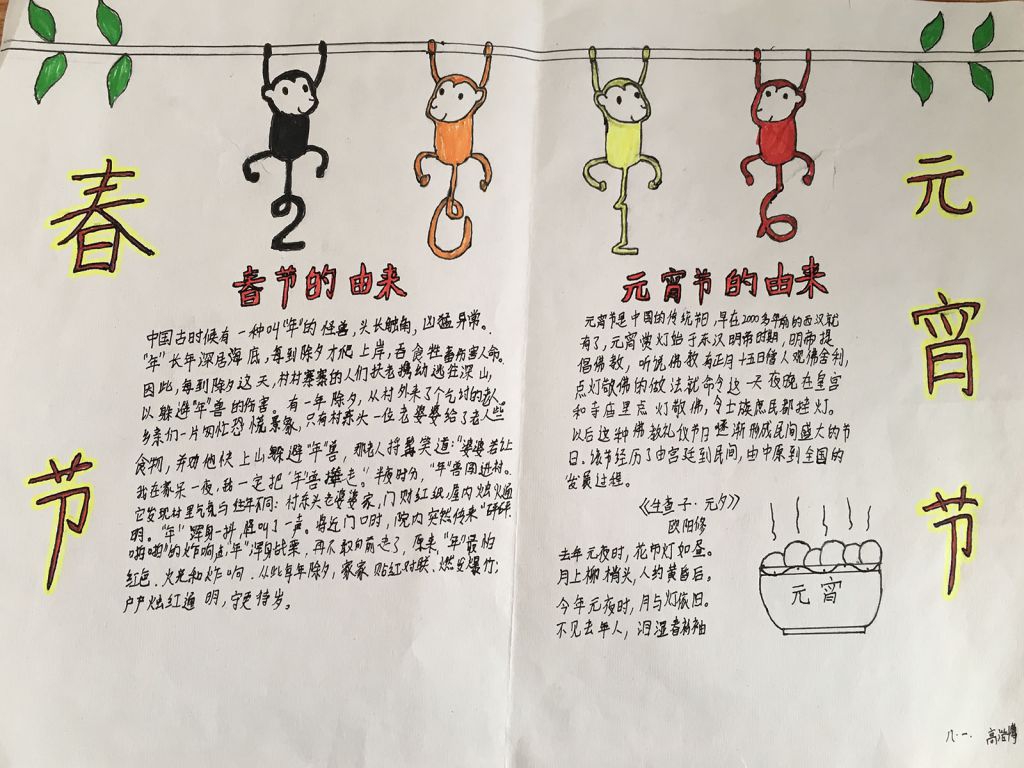 春节
2016
春节的由来
中国古时候有一种叫"年"的怪兽,头长触角,凶猛异常。
"年"长年深居海底,每到除夕才爬上岸,吞食牲畜伤害人命。
因此,每到除夕这天,村村寨寨的人们扶老携幼逃往深山,
以躲避"年"兽的伤害。有一年除夕,从村外来了个乞讨的老人。
乡亲们一片匆忙恐慌景象,只有村东头一位老婆婆给了老人些
食物,并劝他快上山躲避"年"兽,那老人捋髯笑道:"婆婆若让
我在家呆一夜,我一定把"年"兽撵走。"半夜时分,"年"兽闯进村。
它发现村里气氛与往年不同:村东头老婆婆家,门贴红纸,屋内烛火通
明。"年"浑身一抖,怪叫了一声。将近门口时,院内突然传来"砰砰
啪啪"的炸响声,"年"浑身战栗,再不敢向前走了,原来,"年"最怕
红色、火光和炸响。从此每年除夕,家家贴红对联、燃放爆竹;
户户烛红通明,守更待岁。
元宵节的由来
元宵节是中国的传统节日,早在2000多年前的西汉就
有了,元宵赏灯始于东汉明帝时期,明帝提
倡佛教,听说佛教有正月十五日僧人观佛舍利,
点灯敬佛的做法就命令这一天夜晚在皇宫
和寺庙里点灯敬佛,令士族庶民都挂灯。
以后这种佛教礼仪节日逐渐形成民间盛大的节
日。该节经历了由宫廷到民间,由中原到全国的
发展过程。
《生查子·元夕》
欧阳修
去年元夜时,花市灯如昼。
月上柳梢头,人约黄昏后。
今年元夜时,月与灯依旧。
不见去年人,泪湿春衫袖
元宵
元宵节
八·一. 高浩博